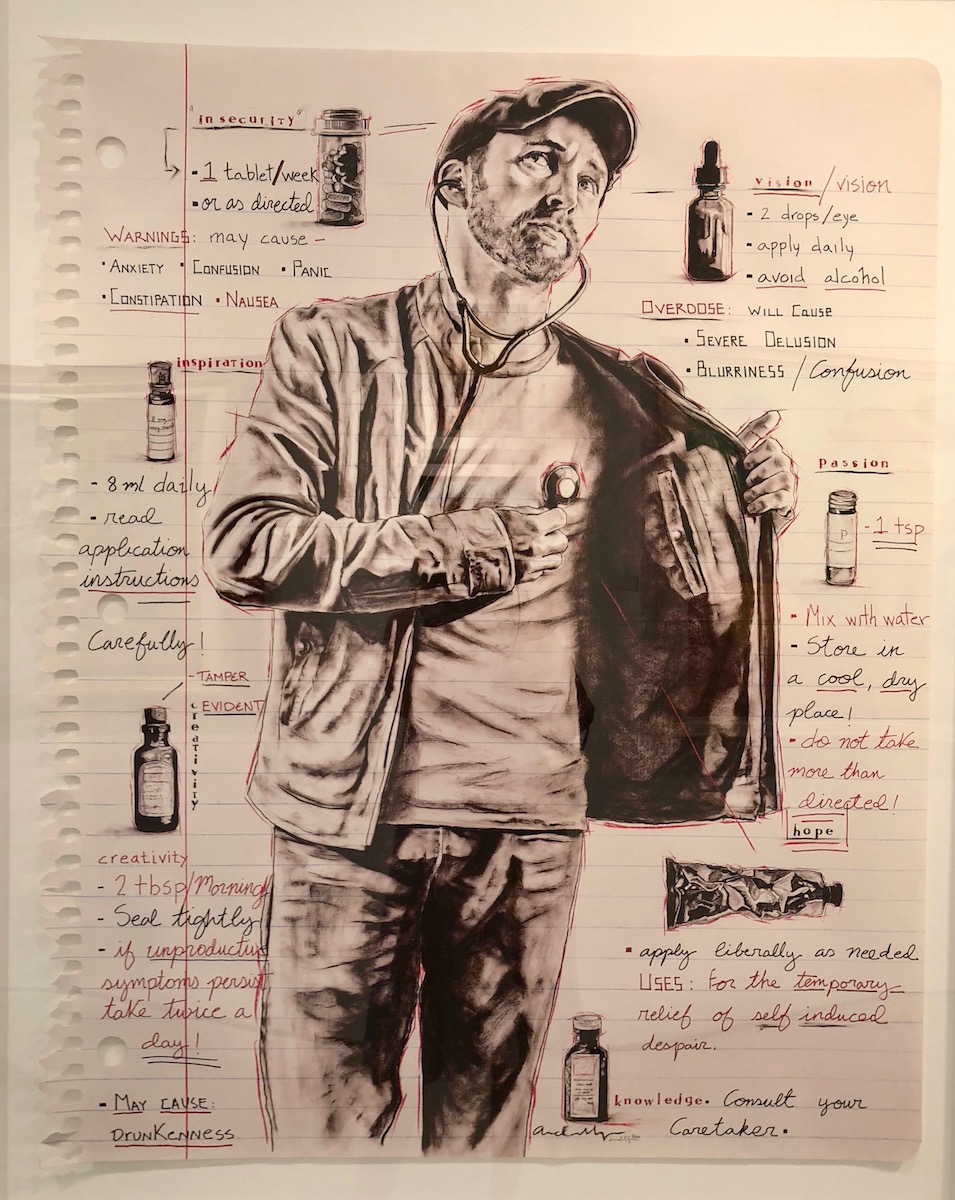 "insecurity"
- 1 tablet/week
- or as directed
WARNINGS: may cause -
· ANXIETY · CONFUSION · PANIC
· CONSTIPATION · NAUSEA
vision/vision
- 2 drops/eye
- apply daily
- avoid alcohol
OVERDOSE: WILL CAUSE
· SEVERE DELUSION
· BLURRINESS / Confusion
inspiration
- 8 ml daily
- read
application
instructions
Carefully!
Passion
P
- 1 tsp
- Mix with water
- Store in
a cool, dry
place!
- do not take
more than
directed!
- TAMPER
EVIDENT
creativity
creativity
- 2 tbsp/Morning
- Seal tightly
- if unproductive
symptoms persist
take twice a
day!
- MAY CAUSE:
DRUNKENNESS
hope
· apply liberally as needed
USES: For the temporary
relief of self induced
despair.
knowledge. Consult your
Caretaker.